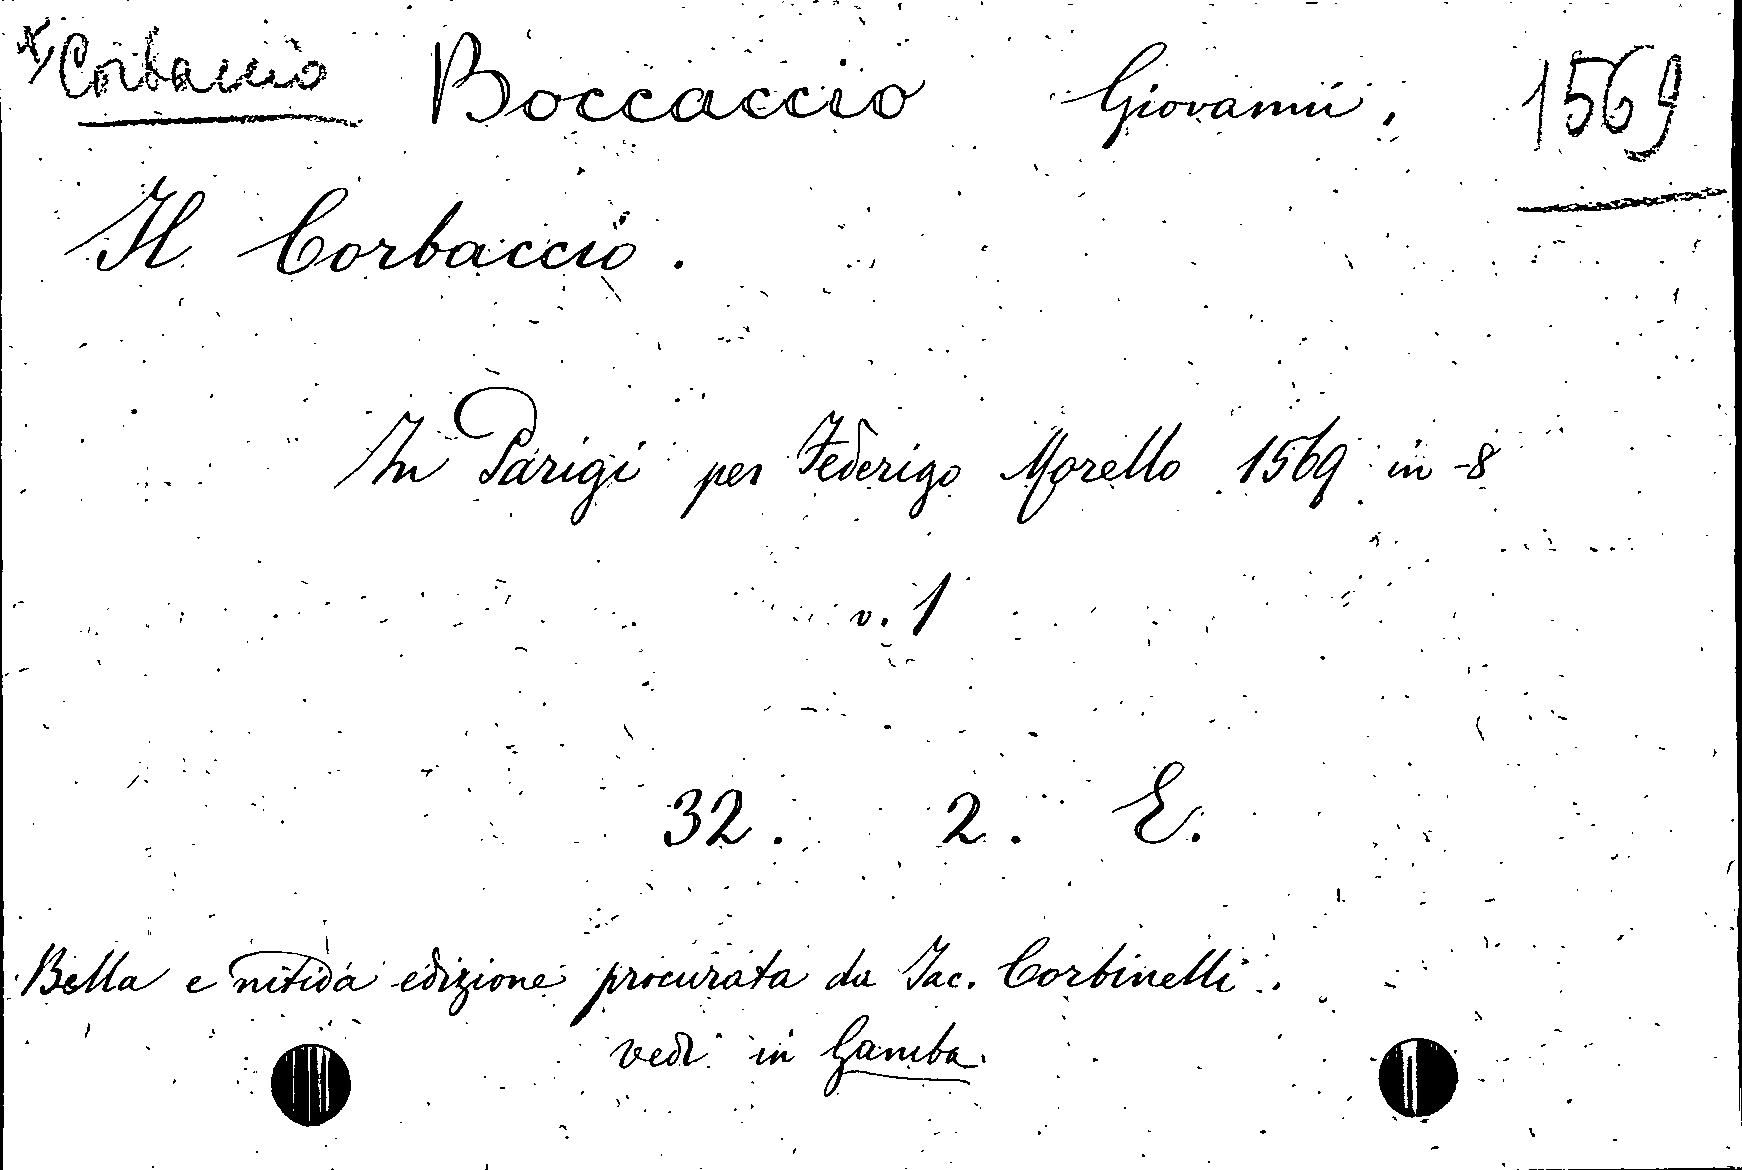 x) Corbaccio Boccaccio Giovanni. 1569
Il Corbaccio.
In Parigi per Federigo Morello 1569 in -8
v. 1
32. 2. E.
Bella e nitida edizione procurata da Jac. Corbinelli.
vedi in Gamba.